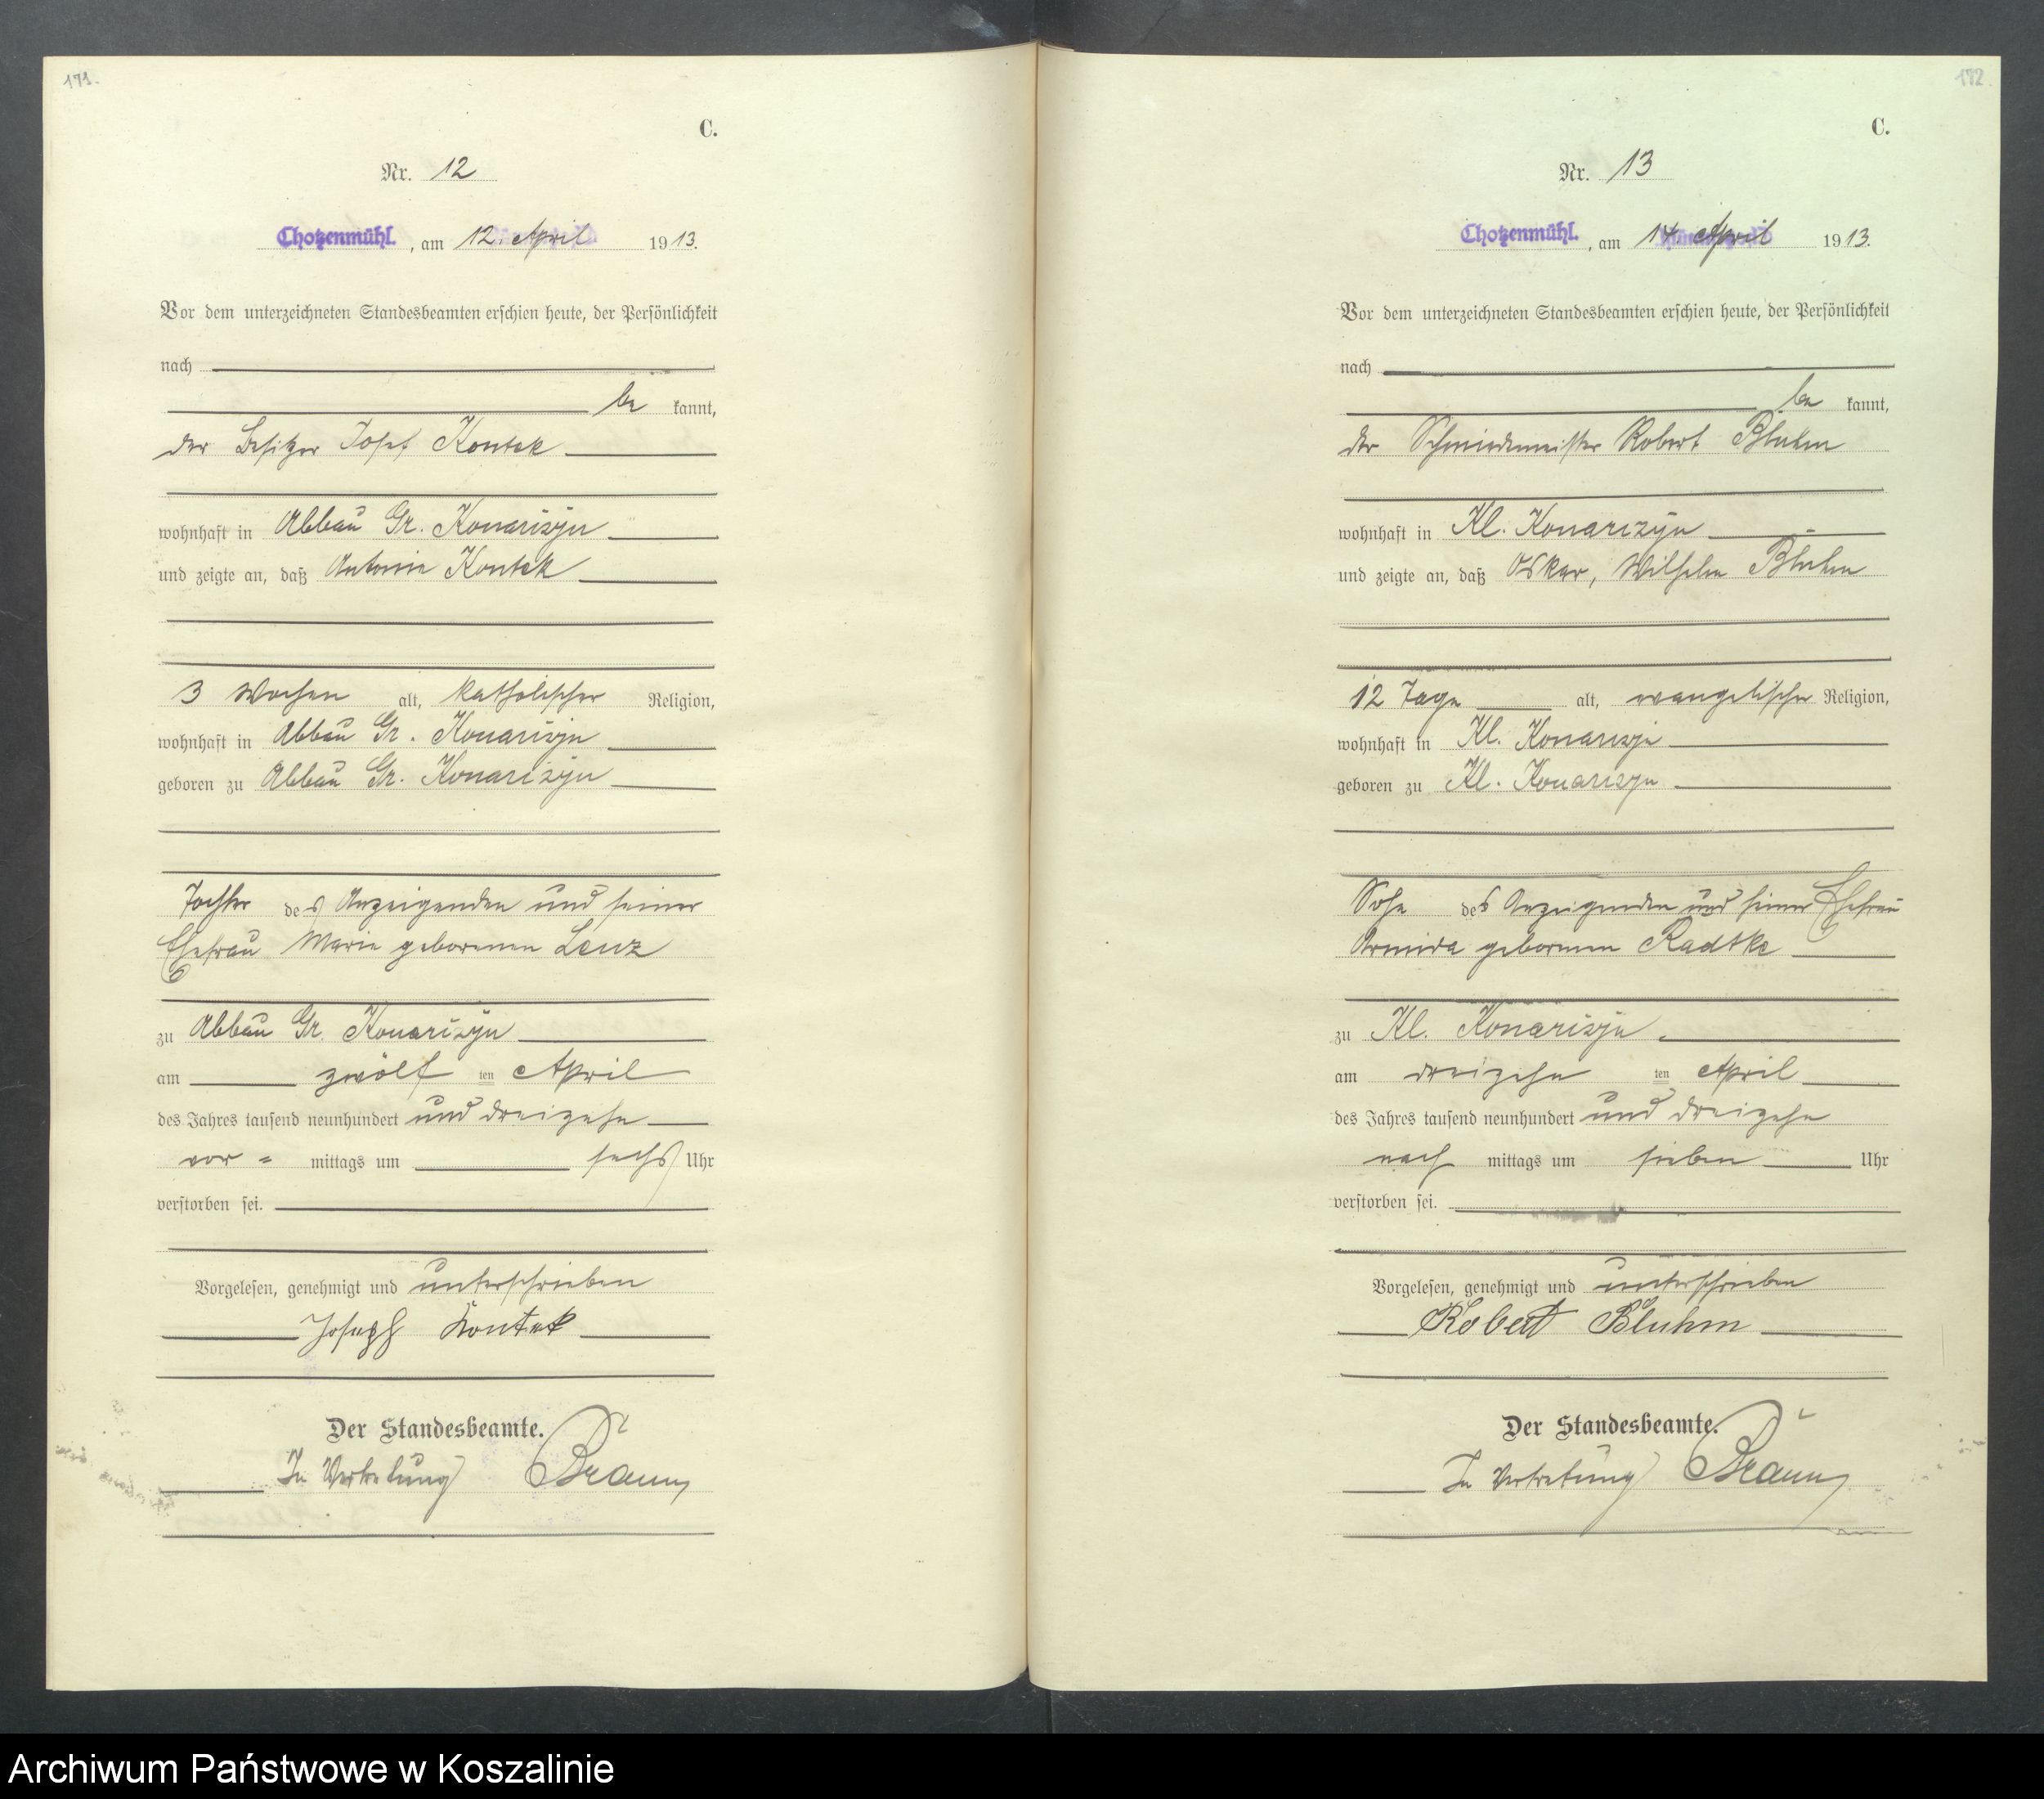 171.
C.
Nr. 12
Chotzenmühl. , am 12. April 1913.
Vor dem unterzeichneten Standesbeamten erschien heute, der Persönlichkeit
nach
be kannt,
der Besitzer Josef Kontek
wohnhaft in Abbau Gr. Konarizyn
und zeigte an, daß Antonie Kontek
3 Wochen alt, katholischer Religion,
wohnhaft in Abbau Gr. Konarizyn
geboren zu Abbau Gr. Konarizyn
Tochter des Anzeigenden und seiner
Ehefrau Marie geborenen Lenz
zu Abbau Gr. Konarizyn
am zwölf ten April
des Jahres tausend neunhundert und dreizehn
vor = mittags um sechs Uhr
verstorben sei.
Vorgelesen, genehmigt und unterschrieben
Joseph Kontek
Der Standesbeamte.
In Vertretung Braun
172.
C.
Nr. 13
Chotzenmühl. , am 14 April 1913.
Vor dem unterzeichneten Standesbeamten erschien heute, der Persönlichkeit
nach
be kannt,
der Schmiedemeister Robert Bluhm
wohnhaft in Kl. Konarizyn
und zeigte an, daß Oskar, Wilhelm Bluhm
12 Tage alt, evangelischer Religion,
wohnhaft in Kl. Konarizyn
geboren zu Kl. Konarizyn
Sohn des Anzeigenden und seiner Ehefrau
Armida geborenen Radtke
zu Kl. Konarizyn.
am dreizehn ten April
des Jahres tausend neunhundert und dreizehn
nach mittags um sieben Uhr
verstorben sei.
Vorgelesen, genehmigt und unterschrieben
Robert Bluhm
Der Standesbeamte.
In Vertretung Braun
Archiwum Państwowe w Koszalinie